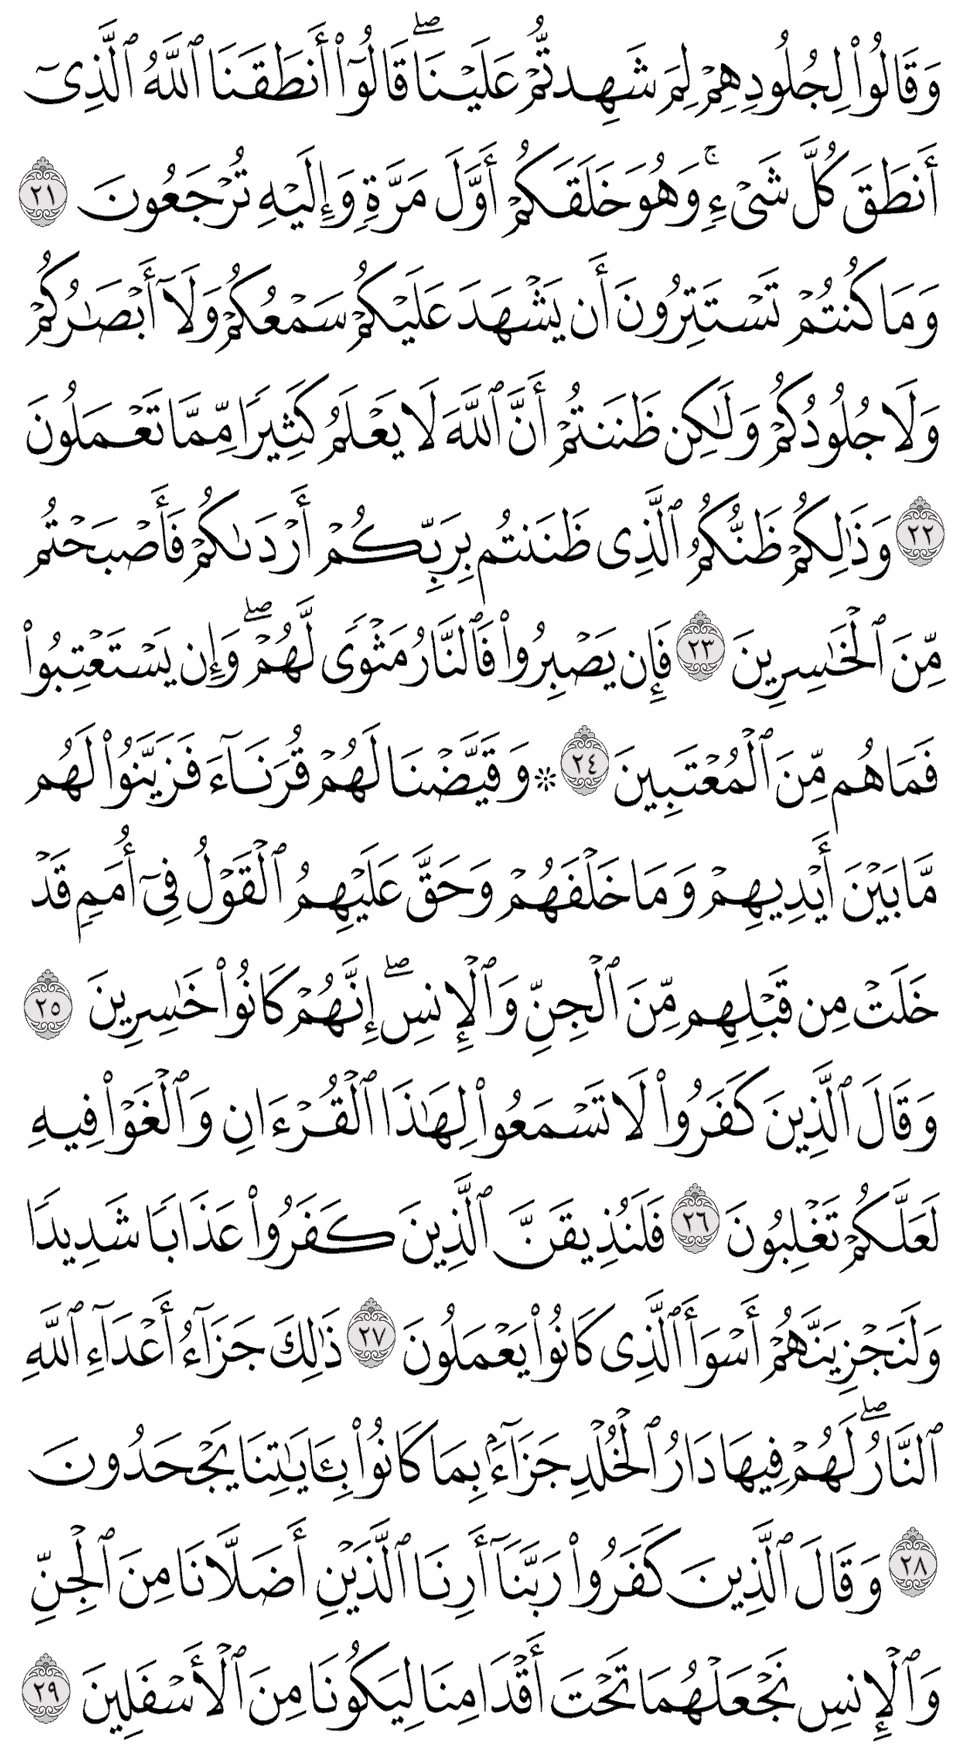 وَقَالُوا۟ لِجُلُودِهِمْ لِمَ شَهِدتُّمْ عَلَيْنَا ۖ قَالُوٓا۟ أَنطَقَنَا ٱللَّهُ ٱلَّذِىٓ
أَنطَقَ كُلَّ شَىْءٍۢ ۚ وَهُوَ خَلَقَكُمْ أَوَّلَ مَرَّةٍۢ وَإِلَيْهِ تُرْجَعُونَ ٢١
وَمَا كُنتُمْ تَسْتَتِرُونَ أَن يَشْهَدَ عَلَيْكُمْ سَمْعُكُمْ وَلَآ أَبْصَـٰرُكُمْ
وَلَا جُلُودُكُمْ وَلَـٰكِن ظَنَنتُمْ أَنَّ ٱللَّهَ لَا يَعْلَمُ كَثِيرًۭا مِّمَّا تَعْمَلُونَ
٢٢ وَذَٰلِكُمْ ظَنُّكُمُ ٱلَّذِى ظَنَنتُم بِرَبِّكُمْ أَرْدَىٰكُمْ فَأَصْبَحْتُم
مِّنَ ٱلْخَـٰسِرِينَ ٢٣ فَإِن يَصْبِرُوا۟ فَٱلنَّارُ مَثْوًۭى لَّهُمْ ۖ وَإِن يَسْتَعْتِبُوا۟
فَمَا هُم مِّنَ ٱلْمُعْتَبِينَ ٢٤ ۞ وَقَيَّضْنَا لَهُمْ قُرَنَآءَ فَزَيَّنُوا۟ لَهُم
مَّا بَيْنَ أَيْدِيهِمْ وَمَا خَلْفَهُمْ وَحَقَّ عَلَيْهِمُ ٱلْقَوْلُ فِىٓ أُمَمٍۢ قَدْ
خَلَتْ مِن قَبْلِهِم مِّنَ ٱلْجِنِّ وَٱلْإِنسِ ۖ إِنَّهُمْ كَانُوا۟ خَـٰسِرِينَ ٢٥
وَقَالَ ٱلَّذِينَ كَفَرُوا۟ لَا تَسْمَعُوا۟ لِهَـٰذَا ٱلْقُرْءَانِ وَٱلْغَوْا۟ فِيهِ
لَعَلَّكُمْ تَغْلِبُونَ ٢٦ فَلَنُذِيقَنَّ ٱلَّذِينَ كَفَرُوا۟ عَذَابًۭا شَدِيدًۭا
وَلَنَجْزِيَنَّهُمْ أَسْوَأَ ٱلَّذِى كَانُوا۟ يَعْمَلُونَ ٢٧ ذَٰلِكَ جَزَآءُ أَعْدَآءِ ٱللَّهِ
ٱلنَّارُ ۖ لَهُمْ فِيهَا دَارُ ٱلْخُلْدِ جَزَآءًۢ بِمَا كَانُوا۟ بِـَٔايَـٰتِنَا يَجْحَدُونَ
٢٨ وَقَالَ ٱلَّذِينَ كَفَرُوا۟ رَبَّنَآ أَرِنَا ٱلَّذَيْنِ أَضَلَّانَا مِنَ ٱلْجِنِّ
وَٱلْإِنسِ نَجْعَلْهُمَا تَحْتَ أَقْدَامِنَا لِيَكُونَا مِنَ ٱلْأَسْفَلِينَ ٢٩